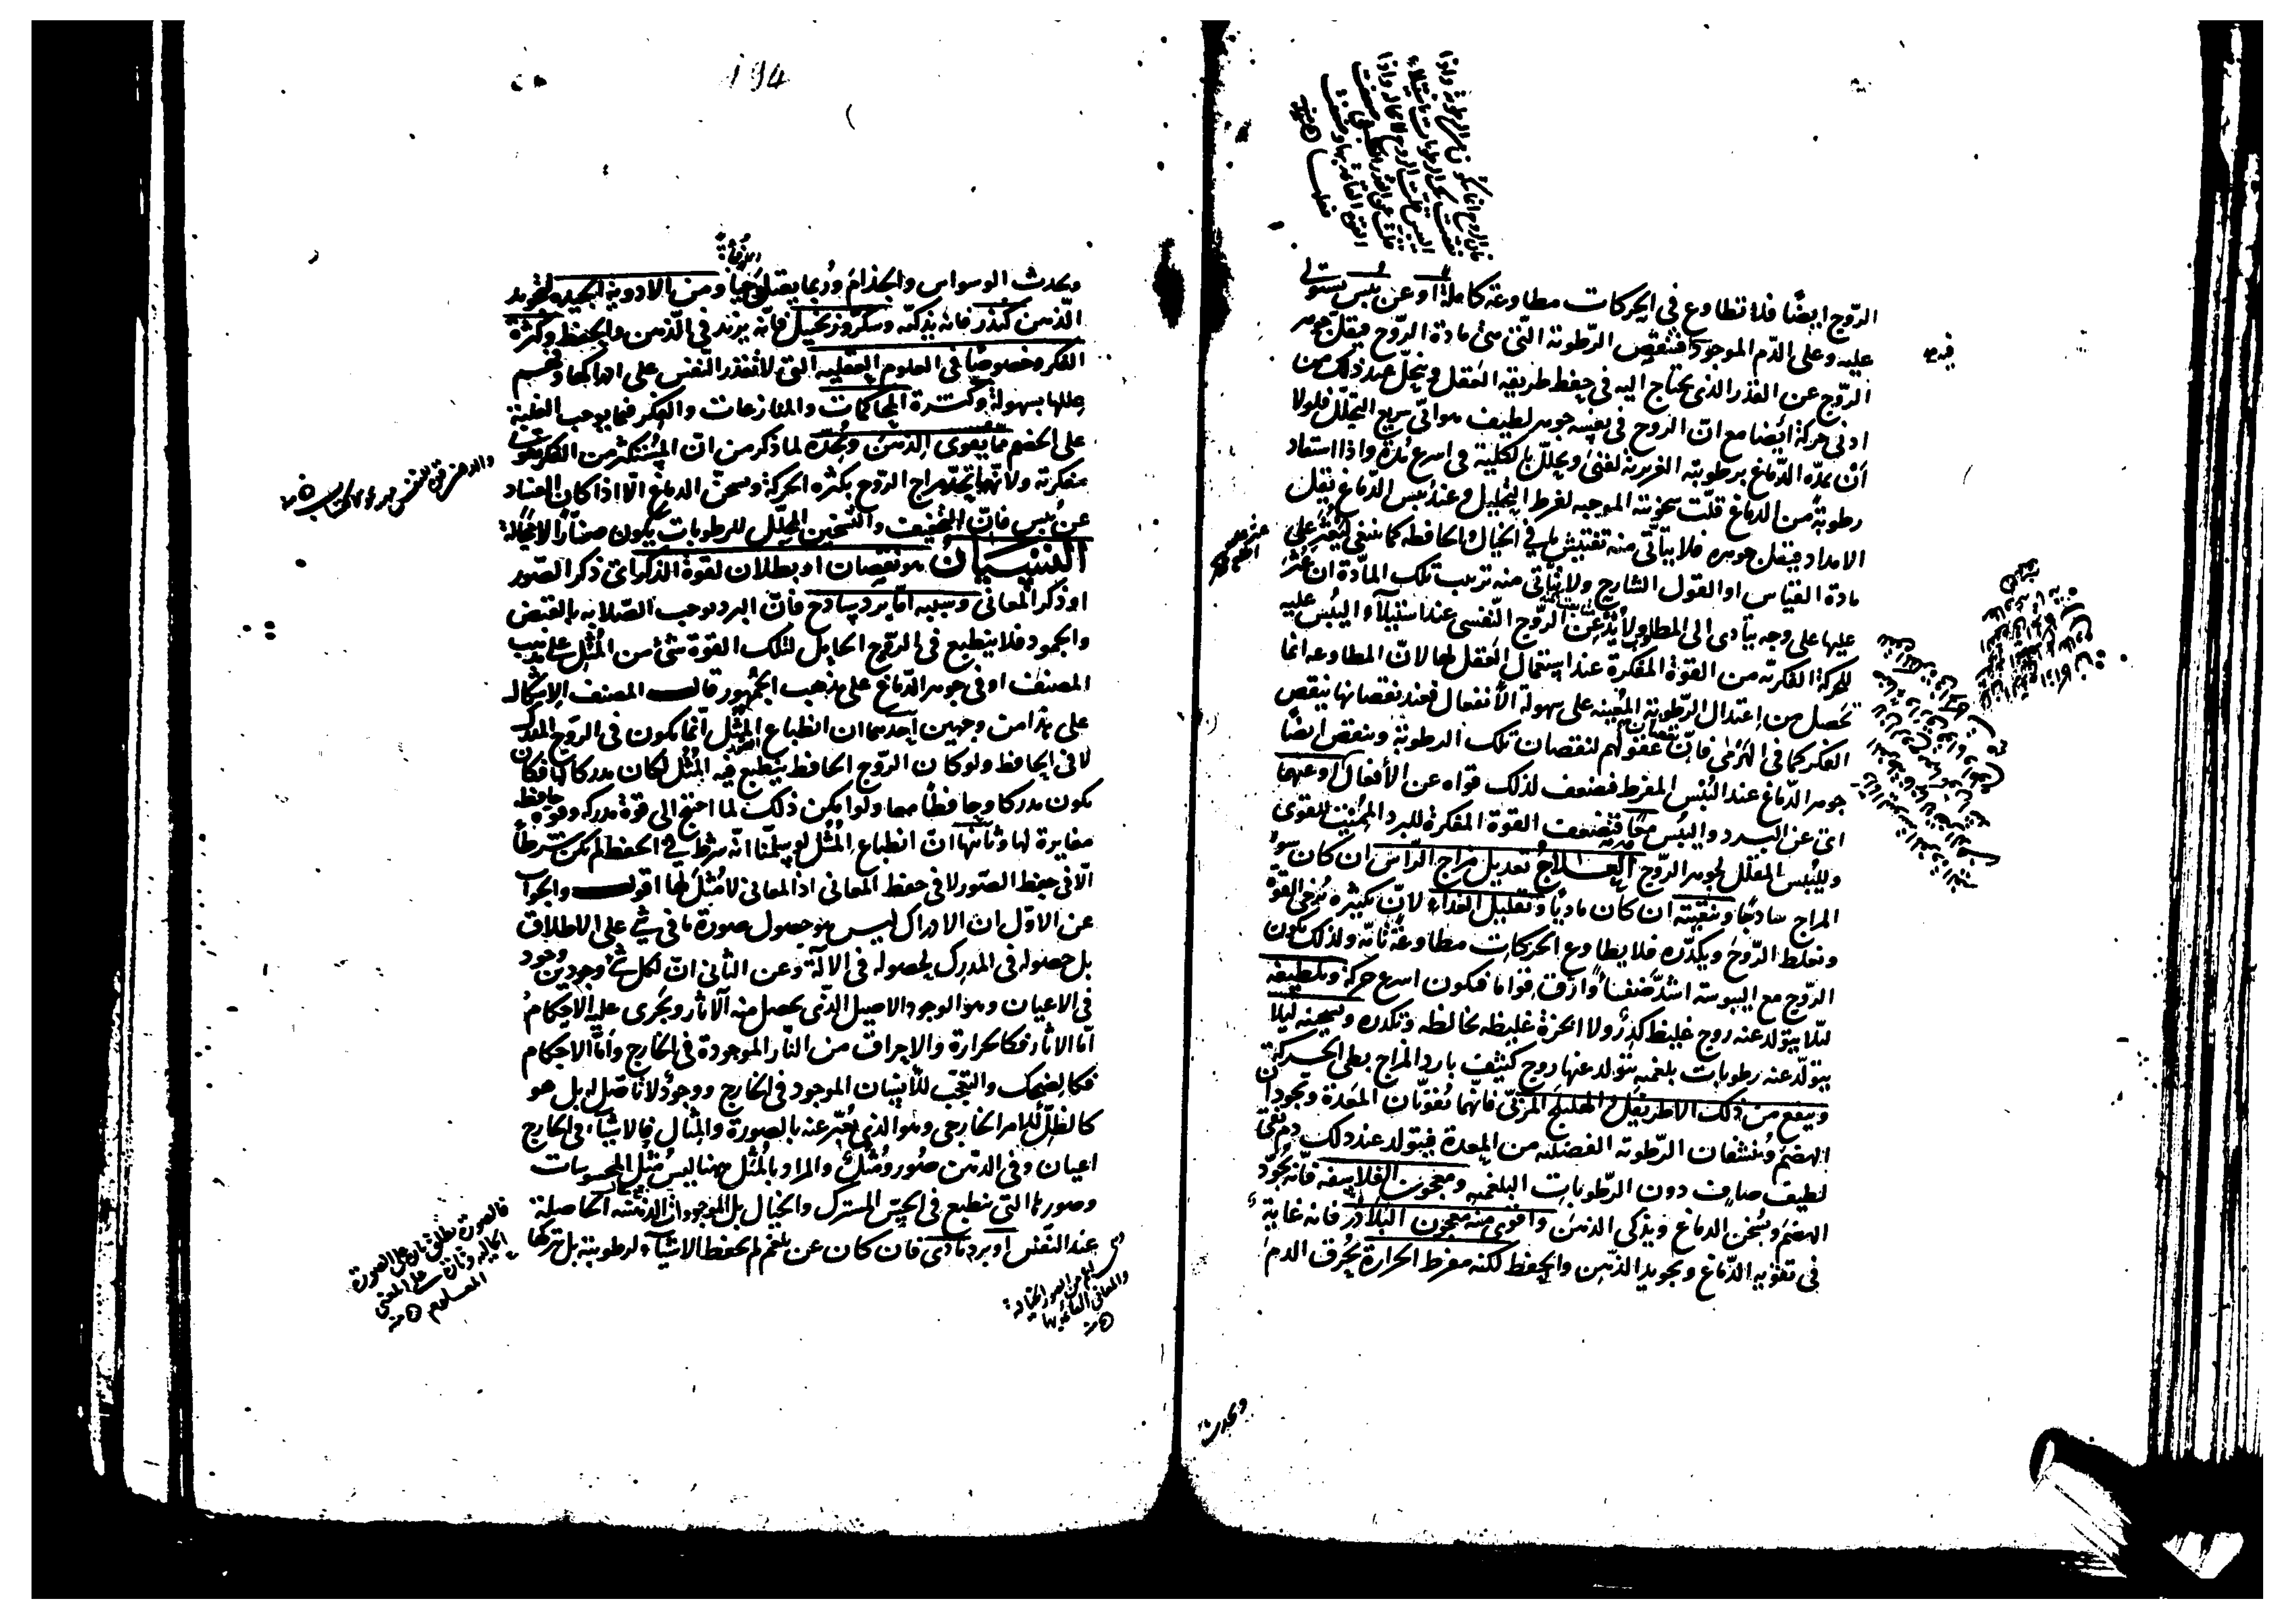 الروح ايضًا فلا تطاوع في الحركات مطاوعة كاملة او عن يبس يستولى
عليه وعلى الدم الموجود فتنقص الرطوبة التي هي مادة الروح فيقل جوهر
الروح عن القدر الذي يحتاج اليه في حفظ طريقة العقل ويتحلل عند ذلك من
ادنى حركة ايضا مع ان الروح في نفسه جوهر لطيف هوائي سريع التحلل فلولا
ان يمده الدماغ برطوبته الغريزية لفنى وتحلل بالكلية في اسرع مدة واذا استفاد
رطوبة من الدماغ قلت سخونته الموجبة لفرط التحليل وعند يبس الدماغ يقل
الامداد فيقل جوهره فلا يتأتى منه تفتيش ما في الخيال والحافظة كما ينبغي ليعثر على
مادة القياس او القول الشارح ولا يتأتى منه ترتيب تلك المادة ان عثر
عليها على وجه يتأدى الى المطلوب ولا يذعن الروح النفسي عند استيلاء اليبس عليه
للحركة الفكرية من القوة المفكرة عند استعمال العقل لها لان المطاوعة انما
تحصل من اعتدال الرطوبة المعينة على سهولة الانفعال فعند نقصانها ينقص
الفكر كما في الهرمى فان نقصان عقولهم لنقصان تلك الرطوبة وينقص ايضا
جوهر الدماغ عند اليبس المفرط فضعف لذلك قواه عن الافعال او عنهما
اى عن البرد واليبس معًا فتضعف القوة المفكرة للبرد المميت للقوى
ولليبس المقلل لجوهر الروح العلاج تعديل مزاج الراس ان كان سوء
المزاج ساذجًا وتنقيته ان كان ماديًا وتقليل الغذاء لان تكثيره يرخى القوة
ويغلظ الروح ويكدره فلا يطاوع الحركات مطاوعة تامة ولذلك يكون
الروح مع اليبوسة اشد صفاء وارق قواما فتكون اسرع حركة وتلطيفه
لئلا يتولد عنه روح غليظ كدر ولا ابخرة غليظة تخالطه وتكدره وتسخينه لئلا
يتولد عنه رطوبات بلغمية يتولد عنها روح كثيف بارد المزاج بطى الحركة
وينفع من ذلك الاطريفل والهليلج المربى فانهما تقويان المعدة وتجودان
الهضم وتنشفان الرطوبة الفضلية من المعدة فيتولد عند ذلك دم نقى
لطيف صاف دون الرطوبات البلغمية ومعجون الفلاسفة فانه يجود
الهضم ويسخن الدماغ ويذكى الذهن واقوى منه معجون البلاذر فانه غاية
في تقوية الدماغ وتجويد الذهن والحفظ لكنه مفرط الحرارة يحرق الدم
ويحدث
194
ويحدث الوسواس والجذام وربما يقتل وحيًا ومن الادوية الجيدة لتجويد
الذهن كندر فانه يذكيه وسكر وزنجبيل فانه يزيد في الذهن والحفظ وكثرة
الفكر وخصوصًا في العلوم العقلية التي لا تقدر النفس على ادراكها وفهم
عللها بسهولة وكثرة المحاكمات والمنازعات والفكر فيما يوجب الغلبة
على الخصم مما يقوى الذهن ويحده لما ذكر من ان المستكثر من الفكر تقوى
مفكرته ولانها تحد مزاج الروح بكثرة الحركة وتسخن الدماغ الا اذا كان الفساد
عن يبس فان التجفيف والتسخين المحلل للرطوبات يكون ضارًا لا محالة
النسيان هو نقصان او بطلان لقوة الذكر اى ذكر الصور
او ذكر المعانى وسببه اما برد ساذج فان البرد يوجب الصلابة بالقبض
والجمود فلا ينطبع في الروح الحامل لتلك القوة شئ من المثل على مذهب
المصنف او في جوهر الدماغ على مذهب الجمهور قال المصنف الاشكال
على هذا من وجهين احدهما ان انطباع المثل انما يكون في الروح المدرك
لا في الحافظ ولو كان الروح الحافظ ينطبع فيه المثل لكان مدركا لها فكان
يكون مدركا وحافظا معا ولو امكن ذلك لما احتيج الى قوة مدركة وقوة حافظة
مغايرة لها وثانيها ان انطباع المثل لو سلمنا انه شرط في الحفظ لم يكن شرطًا
الا في حفظ الصور لا في حفظ المعانى اذ المعانى لا مثل لها اقول والجواب
عن الاول ان الادراك ليس هو حصول صورة ما في شئ على الاطلاق
بل حصوله في المدرك لحصوله في الآلة وعن الثاني ان لكل شئ وجودين وجود
في الاعيان وهو الوجود الاصيل الذي يحصل منه الآثار وتجرى عليه الاحكام
اما الآثار فكالحرارة والاحراق من النار الموجودة في الخارج واما الاحكام
فكالضحك والتعجب للانسان الموجود في الخارج ووجود لا تأصل له بل هو
كالظل للامر الخارجى وهو الذي يعبر عنه بالصورة والمثال فالاشياء في الخارج
اعيان وفي الذهن صور ومثل والمراد بالمثل ههنا ليس مثل المحسوسات
وصورها التي تنطبع في الحس المشترك والخيال بل الموجودات الذهنية الحاصلة
عند النفس او برد مادى فان كان عن بلغم لم يحفظ الاشياء لرطوبته بل تركها
فالصورة تطلق تارة على الصورة
الخيالية وتارة على المعنى
المعلوم